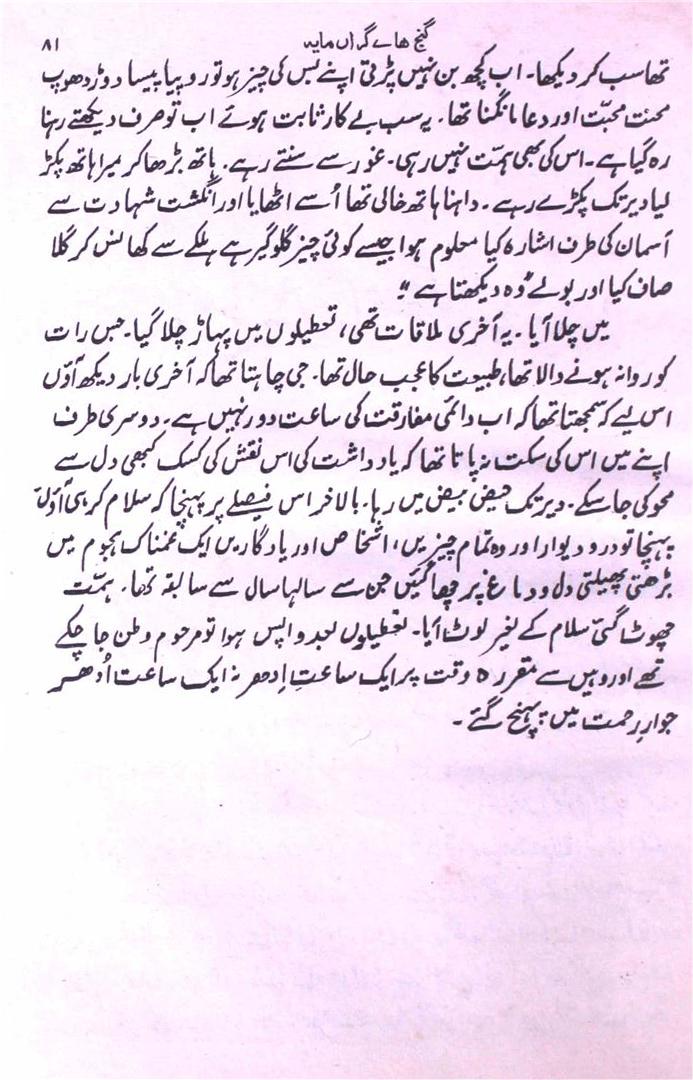 گنج ھاے گراں مایہ ۸۱
تھا سب کر دیکھا۔ اب کچھ بن نہیں پڑتی اپنے بس کی چیز ہو تو روپیا پیسا دوڑ دھوپ
محنت محبّت اور دعا مانگنا تھا۔ یہ سب بے کار ثابت ہوئے اب تو صرف دیکھتے رہنا
رہ گیا ہے۔ اس کی بھی ہمّت نہیں رہی۔ غور سے سنتے رہے۔ ہاتھ بڑھا کر میرا ہاتھ پکڑ
لیا دیر تک پکڑے رہے۔ داہنا ہاتھ خالی تھا اُسے اٹھایا اور انگشت شہادت سے
آسمان کی طرف اشارہ کیا معلوم ہوا جیسے کوئی چیز گلوگیر ہے ہلکے سے کھانس کر گلا
صاف کیا اور بولے "وہ دیکھتا ہے"!
میں چلا آیا۔ یہ آخری ملاقات تھی، تعطیلوں میں پہاڑ چلا گیا۔ جس رات
کو روانہ ہونے والا تھا، طبیعت کا عجب حال تھا۔ جی چاہتا تھا کہ آخری بار دیکھ آؤں
اس لیے کہ سمجھتا تھا کہ اب دائمی مفارقت کی ساعت دور نہیں ہے۔ دوسری طرف
اپنے میں اس کی سکت نہ پاتا تھا کہ یادداشت کی اس نقش کی کسک کبھی دل سے
محو کی جا سکے۔ دیر تک حیض بیض میں رہا۔ بالآخر اس فیصلے پر پہنچا کہ سلام کر ہی آؤں
پہنچا تو در و دیوار اور وہ تمام چیزیں، اشخاص اور یادگاریں ایک غمناک ہجوم میں
بڑھتی پھیلتی دل و دماغ پر چھا گئیں جن سے سالہا سال سے سابقہ تھا۔ ہمّت
چھوٹ گئی سلام کے بغیر لوٹ آیا۔ تعطیلوں بعد واپس ہوا تو مرحوم وطن جا چکے
تھے اور وہیں سے مقررہ وقت پر ایک ساعتِ اِدھر نہ ایک ساعت اُدھر
جوارِ رحمت میں پہنچ گئے۔